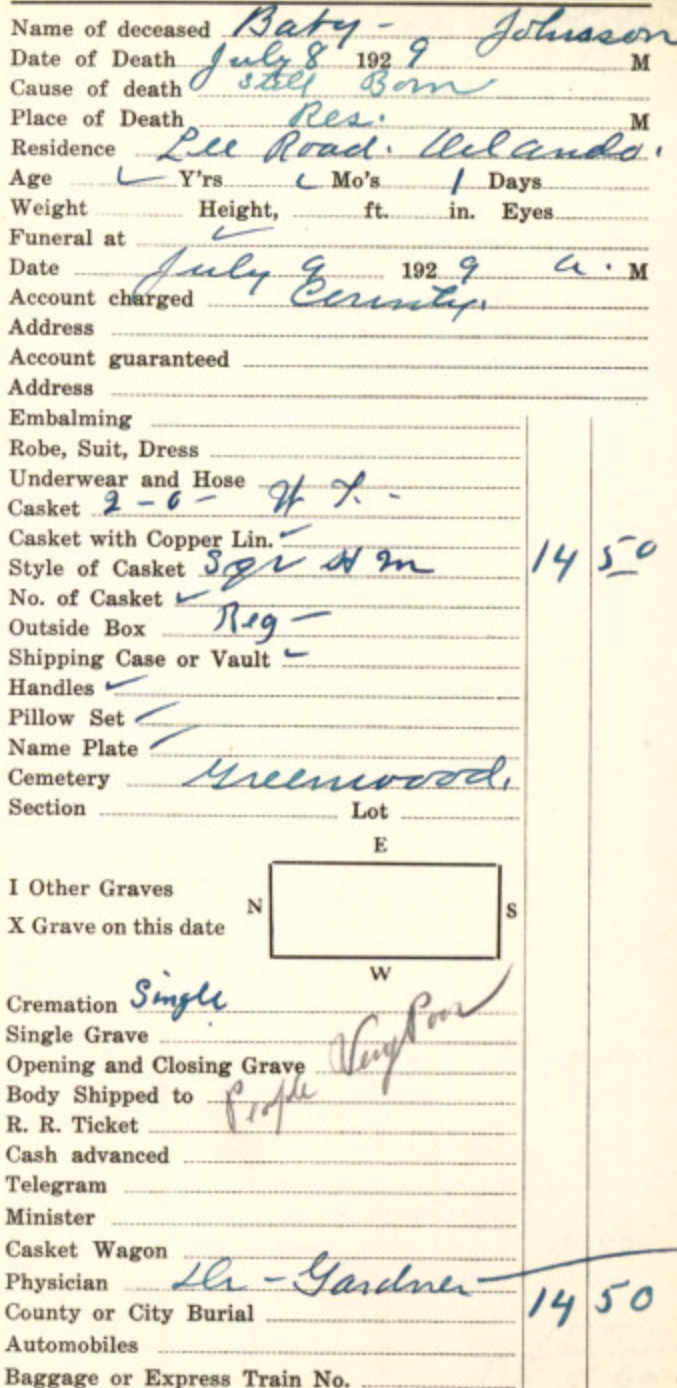 Name of deceased Baby - Johnson
Date of Death July 8 1929 M
Cause of death Still Born
Place of Death Res. M
Residence Lee Road. Orlando.
Age ✓ Y'rs ✓ Mo's 1 Days
Weight Height, ft. in. Eyes
Funeral at ✓
Date July 9 1929 a. M
Account charged County.
Address
Account guaranteed
Address
Embalming
Robe, Suit, Dress
Underwear and Hose
Casket 2-0-
Casket with Copper Lin. ✓
Style of Casket Sqr 14 50
No. of Casket ✓
Outside Box Reg -
Shipping Case or Vault ✓
Handles ✓
Pillow Set ✓
Name Plate ✓
Cemetery Greenwood.
Section Lot
E
I Other Graves
N S
X Grave on this date
W
Cremation Single
Single Grave
Opening and Closing Grave
People Very Poor
Body Shipped to
R. R. Ticket
Cash advanced
Telegram
Minister
Casket Wagon
Physician Dr - Gardner -
County or City Burial 14 50
Automobiles
Baggage or Express Train No.